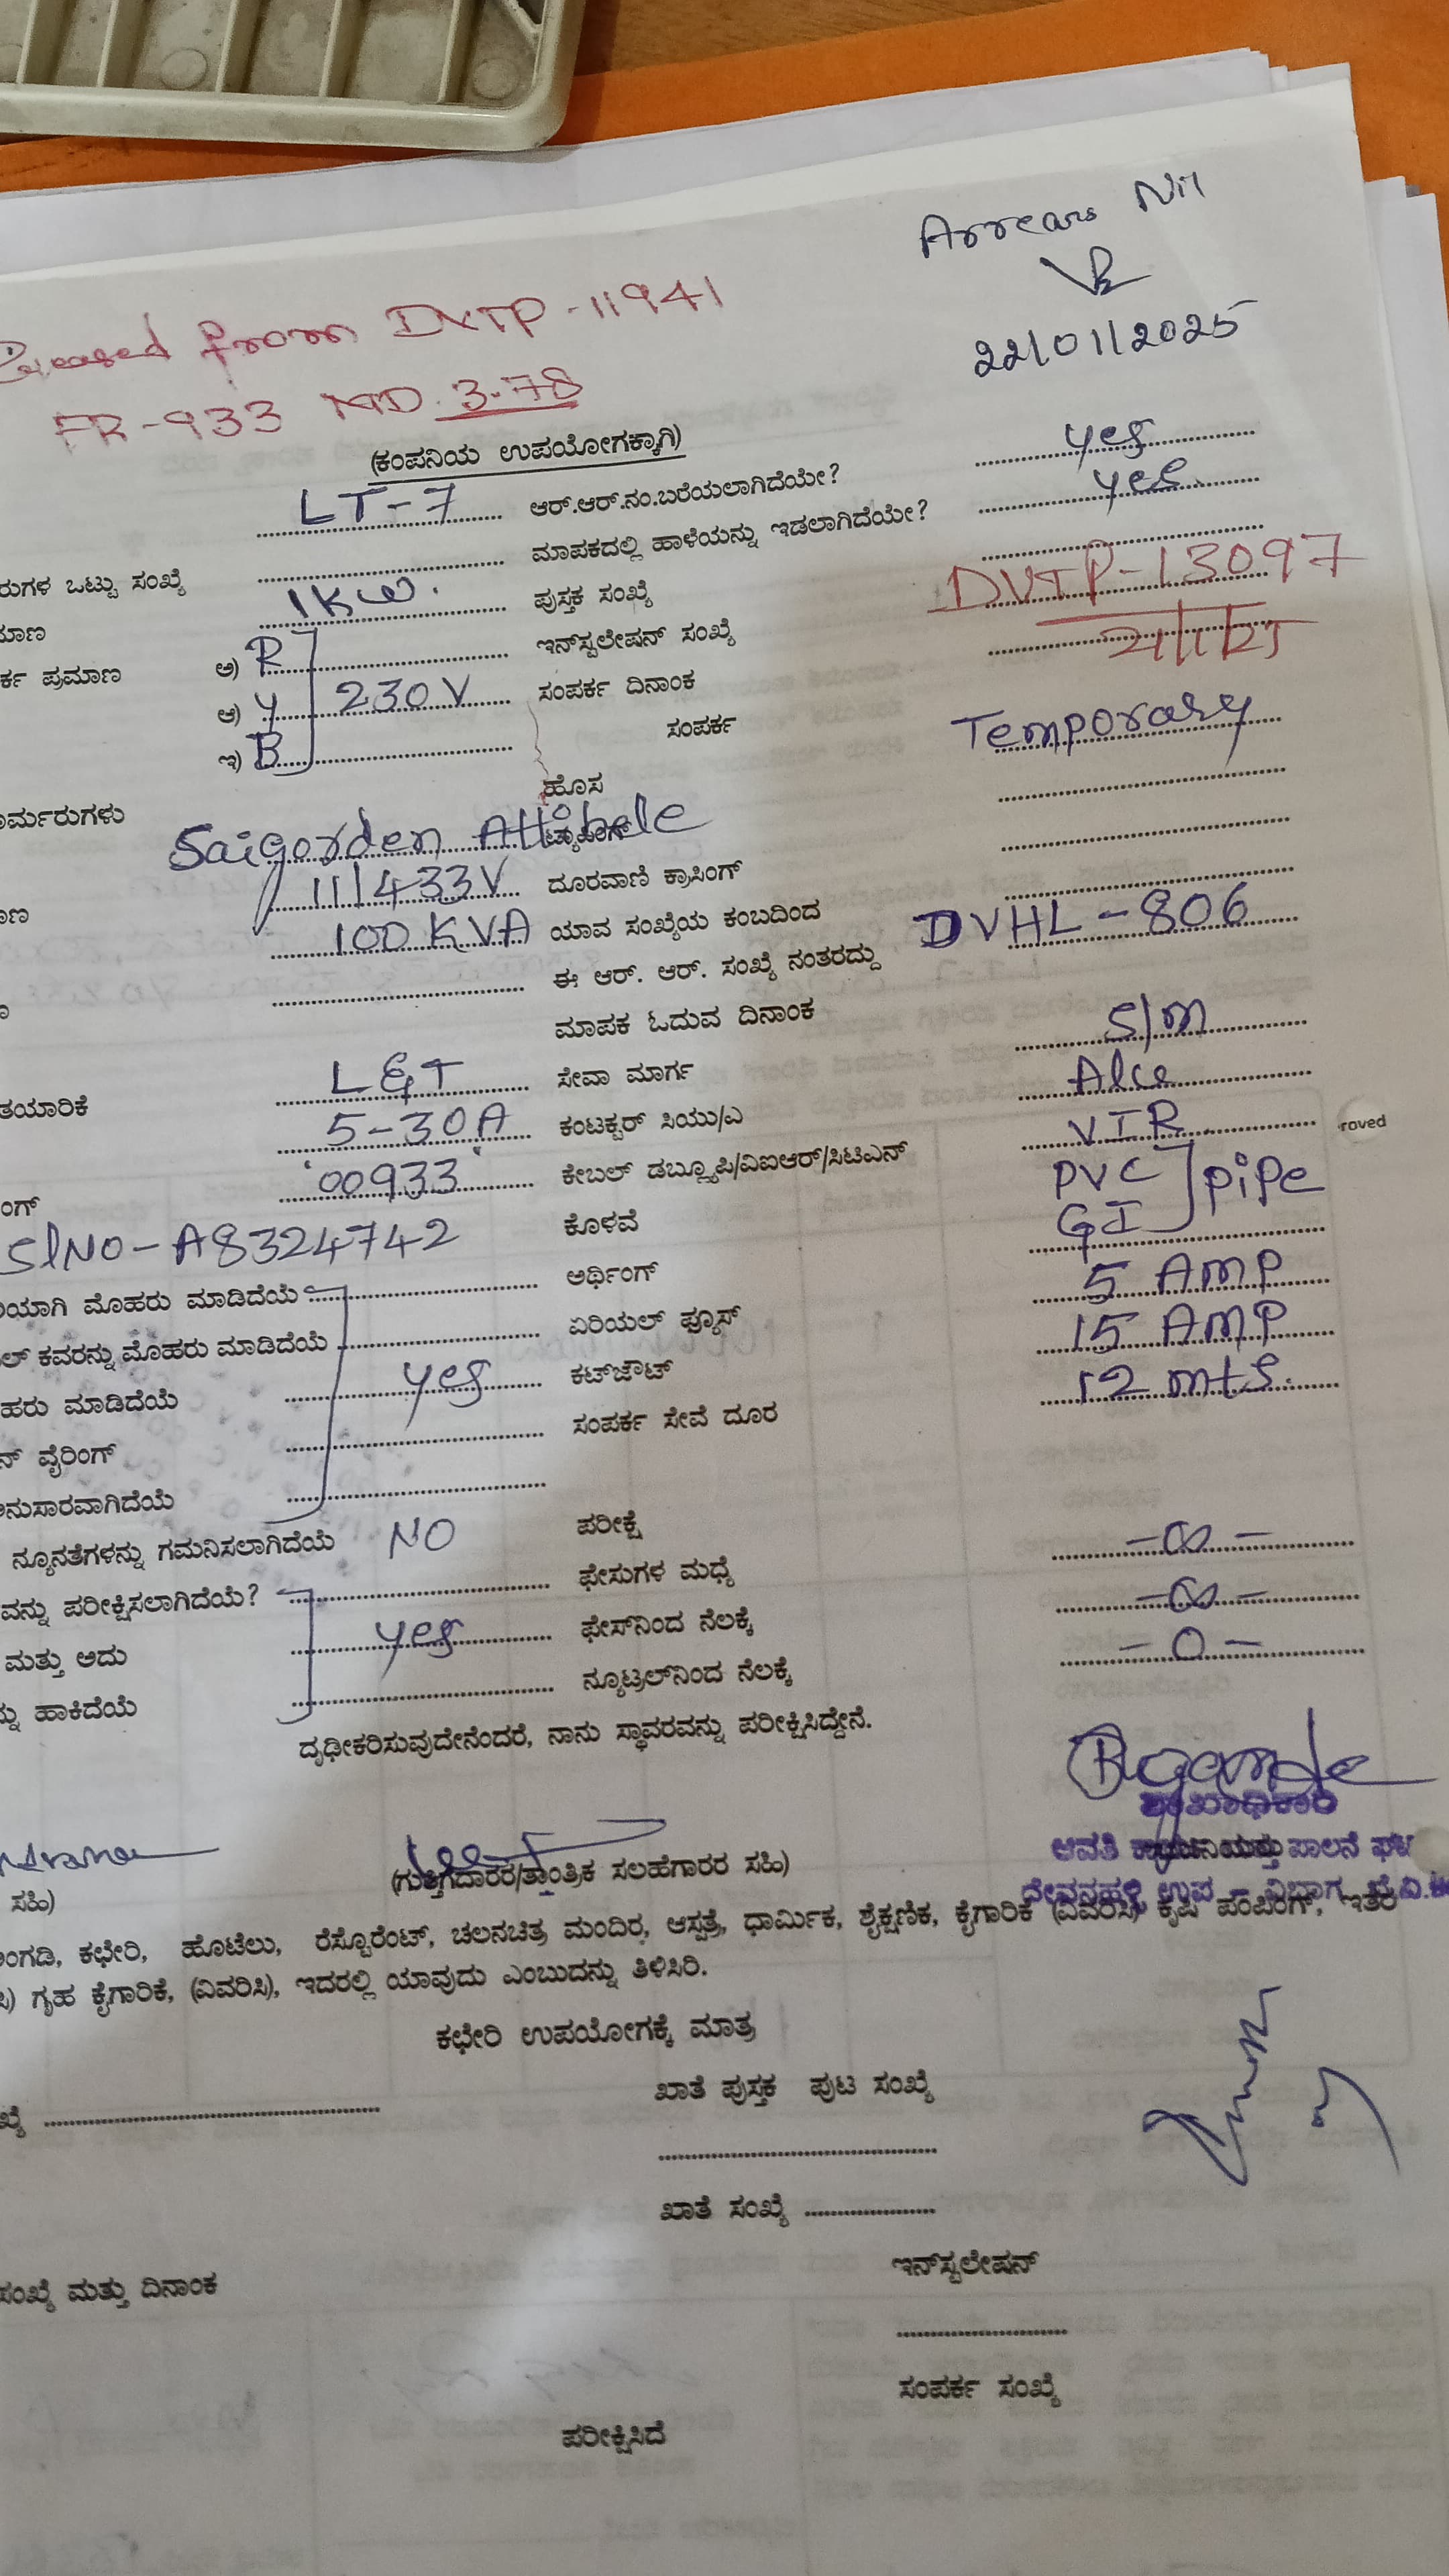 Arrears Nil
22/01/2025
from DVTP-11941
FR-933 MD. 3.78
(ಕಂಪನಿಯ ಉಪಯೋಗಕ್ಕಾಗಿ)
LT-7 ಆರ್.ಆರ್.ನಂ.ಬರೆಯಲಾಗಿದೆಯೇ? yes
ರುಗಳ ಒಟ್ಟು ಸಂಖ್ಯೆ ಮಾಪಕದಲ್ಲಿ ಹಾಳೆಯನ್ನು ಇಡಲಾಗಿದೆಯೇ? yes
ಮಾಣ 1KW. ಪುಸ್ತಕ ಸಂಖ್ಯೆ
ರ್ಕ ಪ್ರಮಾಣ ಅ) R ಇನ್‌ಸ್ಟಲೇಷನ್ ಸಂಖ್ಯೆ DVTP-13097
ಆ) Y 230V ಸಂಪರ್ಕ ದಿನಾಂಕ 21/1/25
ಇ) B ಸಂಪರ್ಕ Temporary
ಹೊಸ
ರ್ಮರುಗಳು Saigorden Attibele
ಮಾಣ 11/433V ದೂರವಾಣಿ ಕ್ರಾಸಿಂಗ್
100 KVA ಯಾವ ಸಂಖ್ಯೆಯ ಕಂಬದಿಂದ
ಈ ಆರ್. ಆರ್. ಸಂಖ್ಯೆ ನಂತರದ್ದು DVHL-806
ಮಾಪಕ ಓದುವ ದಿನಾಂಕ
ತಯಾರಿಕೆ L&T ಸೇವಾ ಮಾರ್ಗ S/M
5-30A ಕಂಟಕ್ಟರ್ ಸಿಯು/ಎ Alce
ಂಗ್ 00933 ಕೇಬಲ್ ಡಬ್ಲ್ಯೂಪಿ/ವಿಐಆರ್/ಸಿಟಿಎನ್ VIR
SlNO-A8324742 ಕೊಳವೆ PVC GI pipe
ಿಯಾಗಿ ಮೊಹರು ಮಾಡಿದೆಯೆ ಅರ್ಥಿಂಗ್
ಲ್ ಕವರನ್ನು ಮೊಹರು ಮಾಡಿದೆಯೆ ಏರಿಯಲ್ ಫ್ಯೂಸ್ 5 AMP
ಹರು ಮಾಡಿದೆಯೆ yes ಕಟ್‌ಔಟ್ 15 AMP
ನ್ ವೈರಿಂಗ್ ಸಂಪರ್ಕ ಸೇವೆ ದೂರ 12 mts.
ಅನುಸಾರವಾಗಿದೆಯೆ
ನ್ಯೂನತೆಗಳನ್ನು ಗಮನಿಸಲಾಗಿದೆಯೆ NO ಪರೀಕ್ಷೆ
ವನ್ನು ಪರೀಕ್ಷಿಸಲಾಗಿದೆಯೆ? ಫೇಸುಗಳ ಮಧ್ಯೆ -∞-
ಮತ್ತು ಅದು yes ಫೇಸ್‌ನಿಂದ ನೆಲಕ್ಕೆ -∞-
ನ್ನು ಹಾಕಿದೆಯೆ ನ್ಯೂಟ್ರಲ್‌ನಿಂದ ನೆಲಕ್ಕೆ -0-
ದೃಢೀಕರಿಸುವುದೇನೆಂದರೆ, ನಾನು ಸ್ಥಾವರವನ್ನು ಪರೀಕ್ಷಿಸಿದ್ದೇನೆ.
ಶಾಖಾಧಿಕಾರಿ
ಸಹಿ) (ಗುತ್ತಿಗೆದಾರರ/ತಾಂತ್ರಿಕ ಸಲಹೆಗಾರರ ಸಹಿ)
ಆವತಿ ಪಾಲನೆ
ದೇವನಹಳ್ಳಿ ಉಪ - ವಿಭಾಗ
ಅಂಗಡಿ, ಕಛೇರಿ, ಹೊಟೆಲು, ರೆಸ್ಟೊರೆಂಟ್, ಚಲನಚಿತ್ರ ಮಂದಿರ, ಆಸ್ಪತ್ರೆ, ಧಾರ್ಮಿಕ, ಶೈಕ್ಷಣಿಕ, ಕೈಗಾರಿಕೆ (ವಿವರಿಸಿ) ಕೃಷಿ ಪಂಪಿಂಗ್, ಇತರೆ
ಗೃಹ ಕೈಗಾರಿಕೆ, (ವಿವರಿಸಿ), ಇದರಲ್ಲಿ ಯಾವುದು ಎಂಬುದನ್ನು ತಿಳಿಸಿರಿ.
ಕಛೇರಿ ಉಪಯೋಗಕ್ಕೆ ಮಾತ್ರ
ಖಾತೆ ಪುಸ್ತಕ ಪುಟ ಸಂಖ್ಯೆ
ಖಾತೆ ಸಂಖ್ಯೆ
ಸಂಖ್ಯೆ ಮತ್ತು ದಿನಾಂಕ ಇನ್‌ಸ್ಟಲೇಷನ್
ಸಂಪರ್ಕ ಸಂಖ್ಯೆ
ಪರೀಕ್ಷಿಸಿದೆ
roved